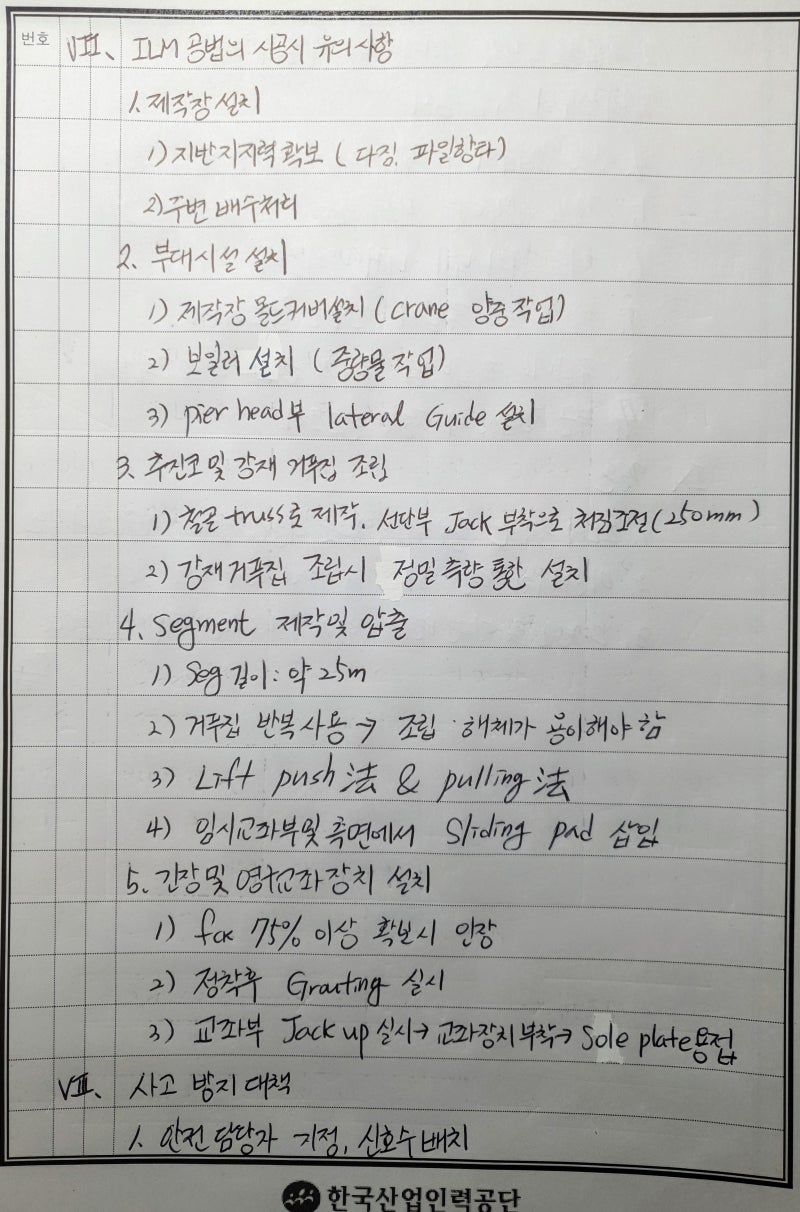 번호
VII. ILM 공법의 시공시 유의사항
1. 제작장 설치
1) 지반지지력 확보 ( 다짐, 파일항타)
2) 주변 배수처리
2. 부대시설 설치
1) 제작장 몰드커버설치 (crane 양중작업)
2) 보일러 설치 (중량물 작업)
3) pier head부 lateral Guide 설치
3. 추진코 및 강재 거푸집 조립
1) 철골 truss로 제작, 선단부 Jack 부착으로 처짐조절(250mm)
2) 강재거푸집 조립시 정밀측량 통한 설치
4. Segment 제작및 압출
1) Seg 길이 : 약 25m
2) 거푸집 반복사용 → 조립·해체가 용이해야 함
3) Lift push法 & pulling法
4) 임시교좌부및 측면에서 Sliding pad 삽입
5. 긴장및 영구교좌장치 설치
1) fck 75% 이상 확보시 인장
2) 정착후 Grouting 실시
3) 교좌부 Jack up 실시→ 교좌장치 부착→ Sole plate용접
VIII. 사고 방지 대책
1. 안전 담당자 지정, 신호수 배치
한국산업인력공단